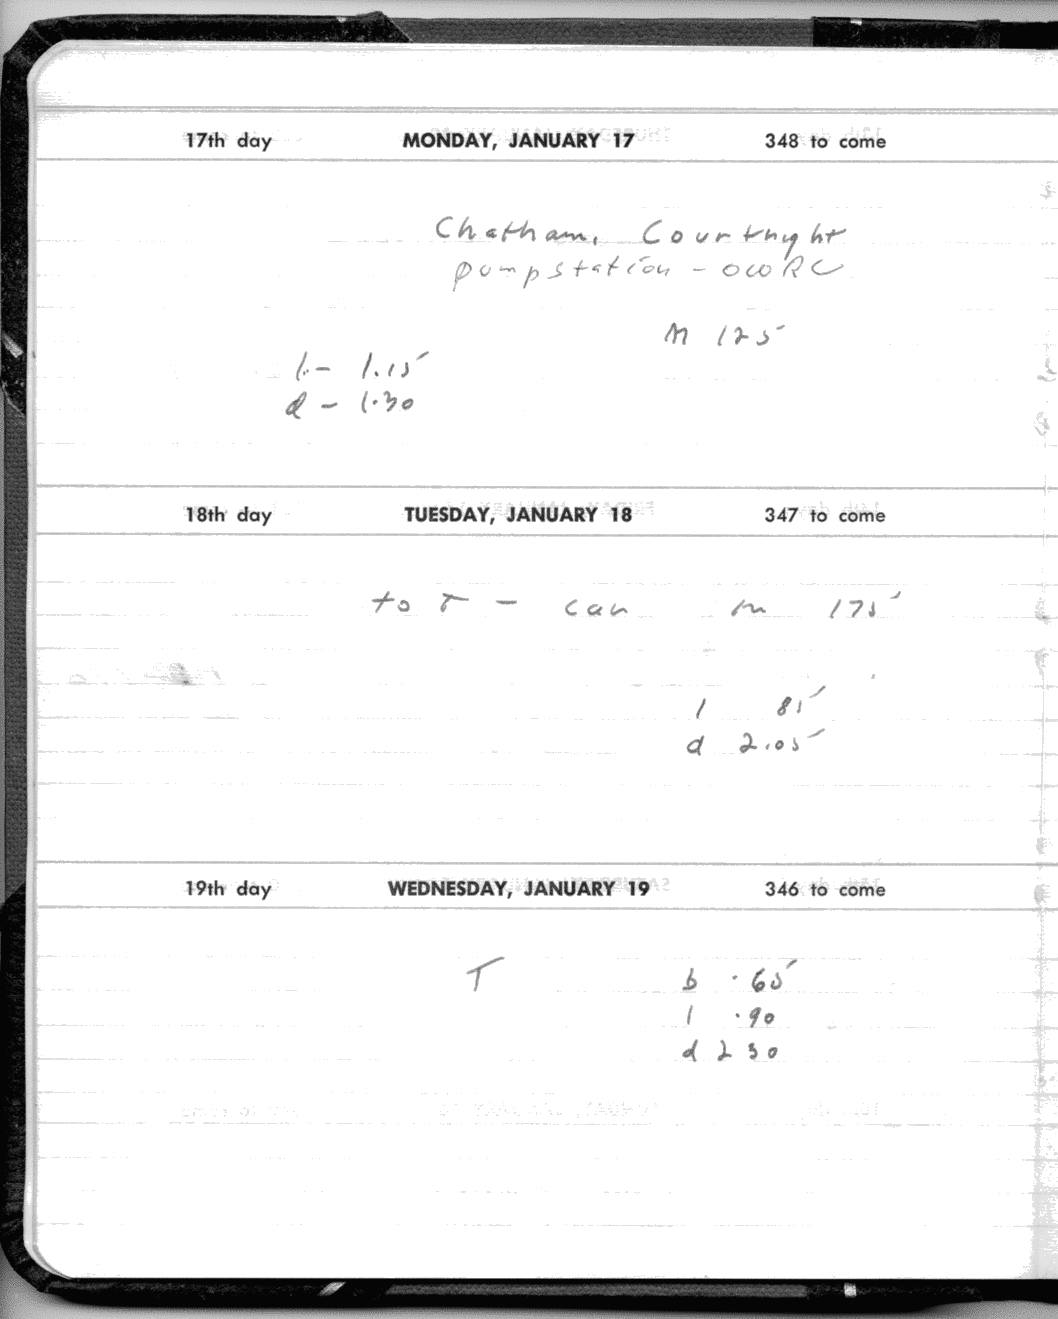 17th day MONDAY, JANUARY 17 348 to come
Chatham, Courtright
pumpstation - OWRC
M 125
l - 1.15
d - 1.30
18th day TUESDAY, JANUARY 18 347 to come
to T - car m 175
l 85
d 2.05
19th day WEDNESDAY, JANUARY 19 346 to come
T b .65
l .90
d 2 30